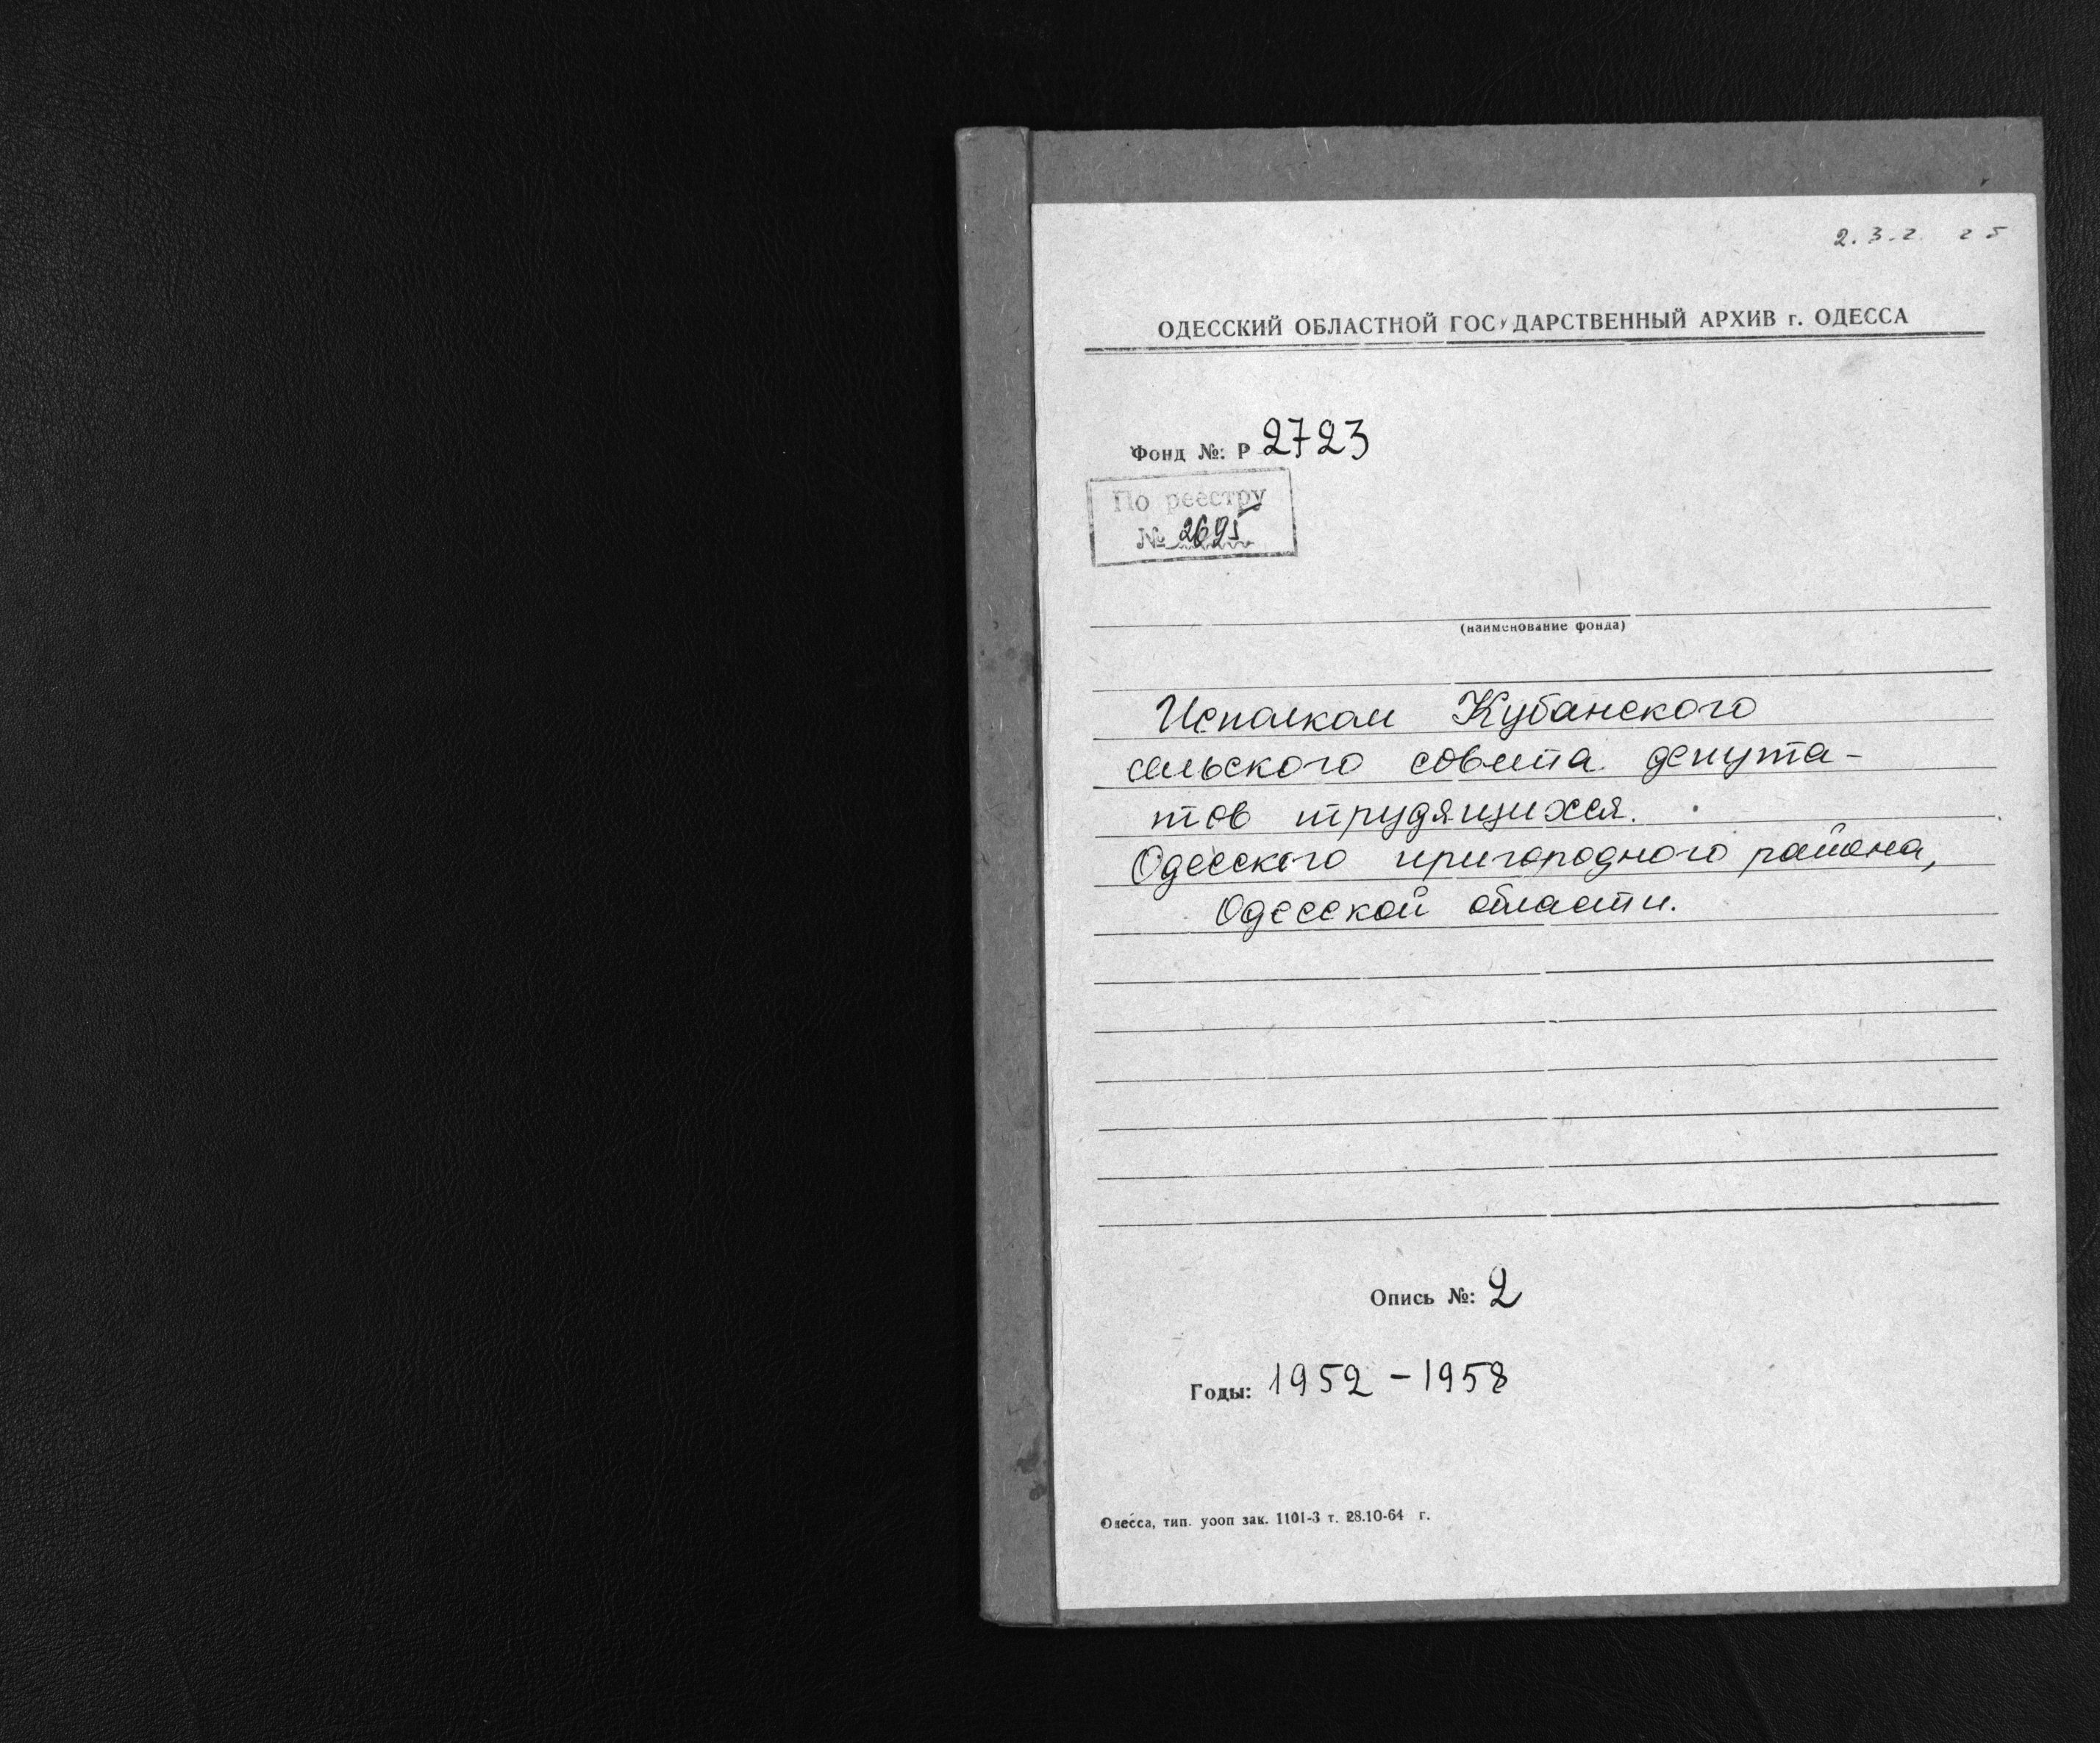 2.3.2. 25
ОДЕССКИЙ ОБЛАСТНОЙ ГОСУДАРСТВЕННЫЙ АРХИВ г. ОДЕССА
Фонд №: Р 2723
По реестру
№ 2695
(наименование фонда)
Исполком Кубанского
сельского совета депута-
тов трудящихся.
Одесского пригородного района,
Одесской области.
Опись №: 2
Годы: 1952 - 1958
Одесса, тип. уооп зак. 1101-3 т. 28.10-64 г.